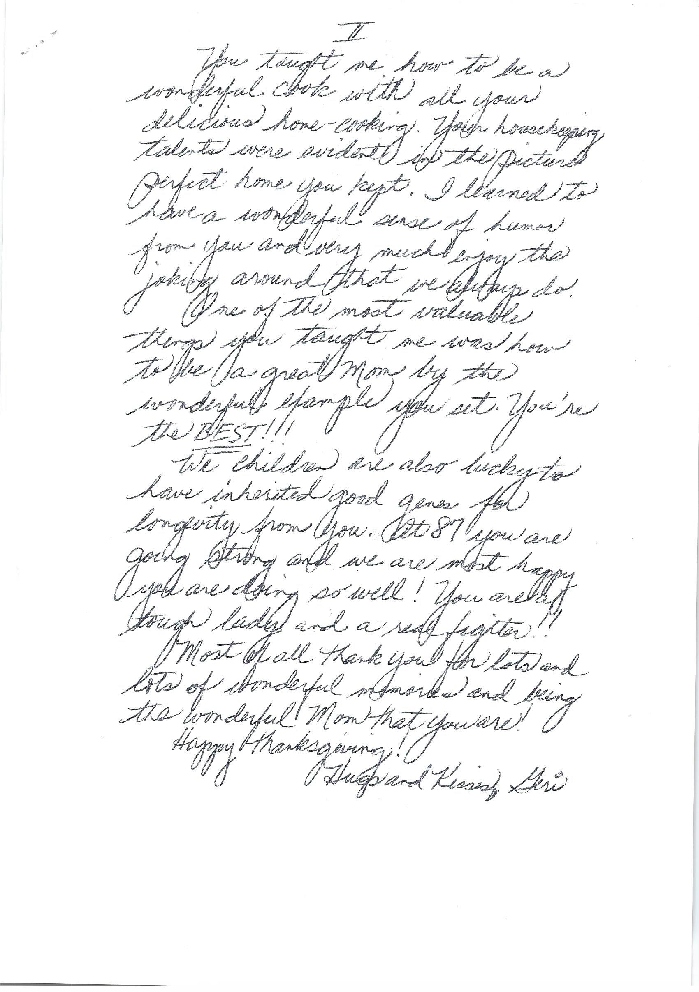 II
You taught me how to be a
wonderful cook with all your
delicious home-cooking. Your housekeeping
talents were evident in the picture
perfect home you kept. I learned to
have a wonderful sense of humor
from you and very much enjoy the
joking around that we always do.
One of the most valuable
things you taught me was how
to be a great Mom by the
wonderful example you set. You're
the BEST!!!
We children are also lucky to
have inherited good genes for
longevity from you. At 87 you are
going strong and we are most happy
you are doing so well! You are a
tough lady and a real figter!!
Most of all thank you for lots and
lots of wonderful memories and being
the wonderful Mom that you are!
Happy Thanksgiving!
Hugs and Kisses, Geri